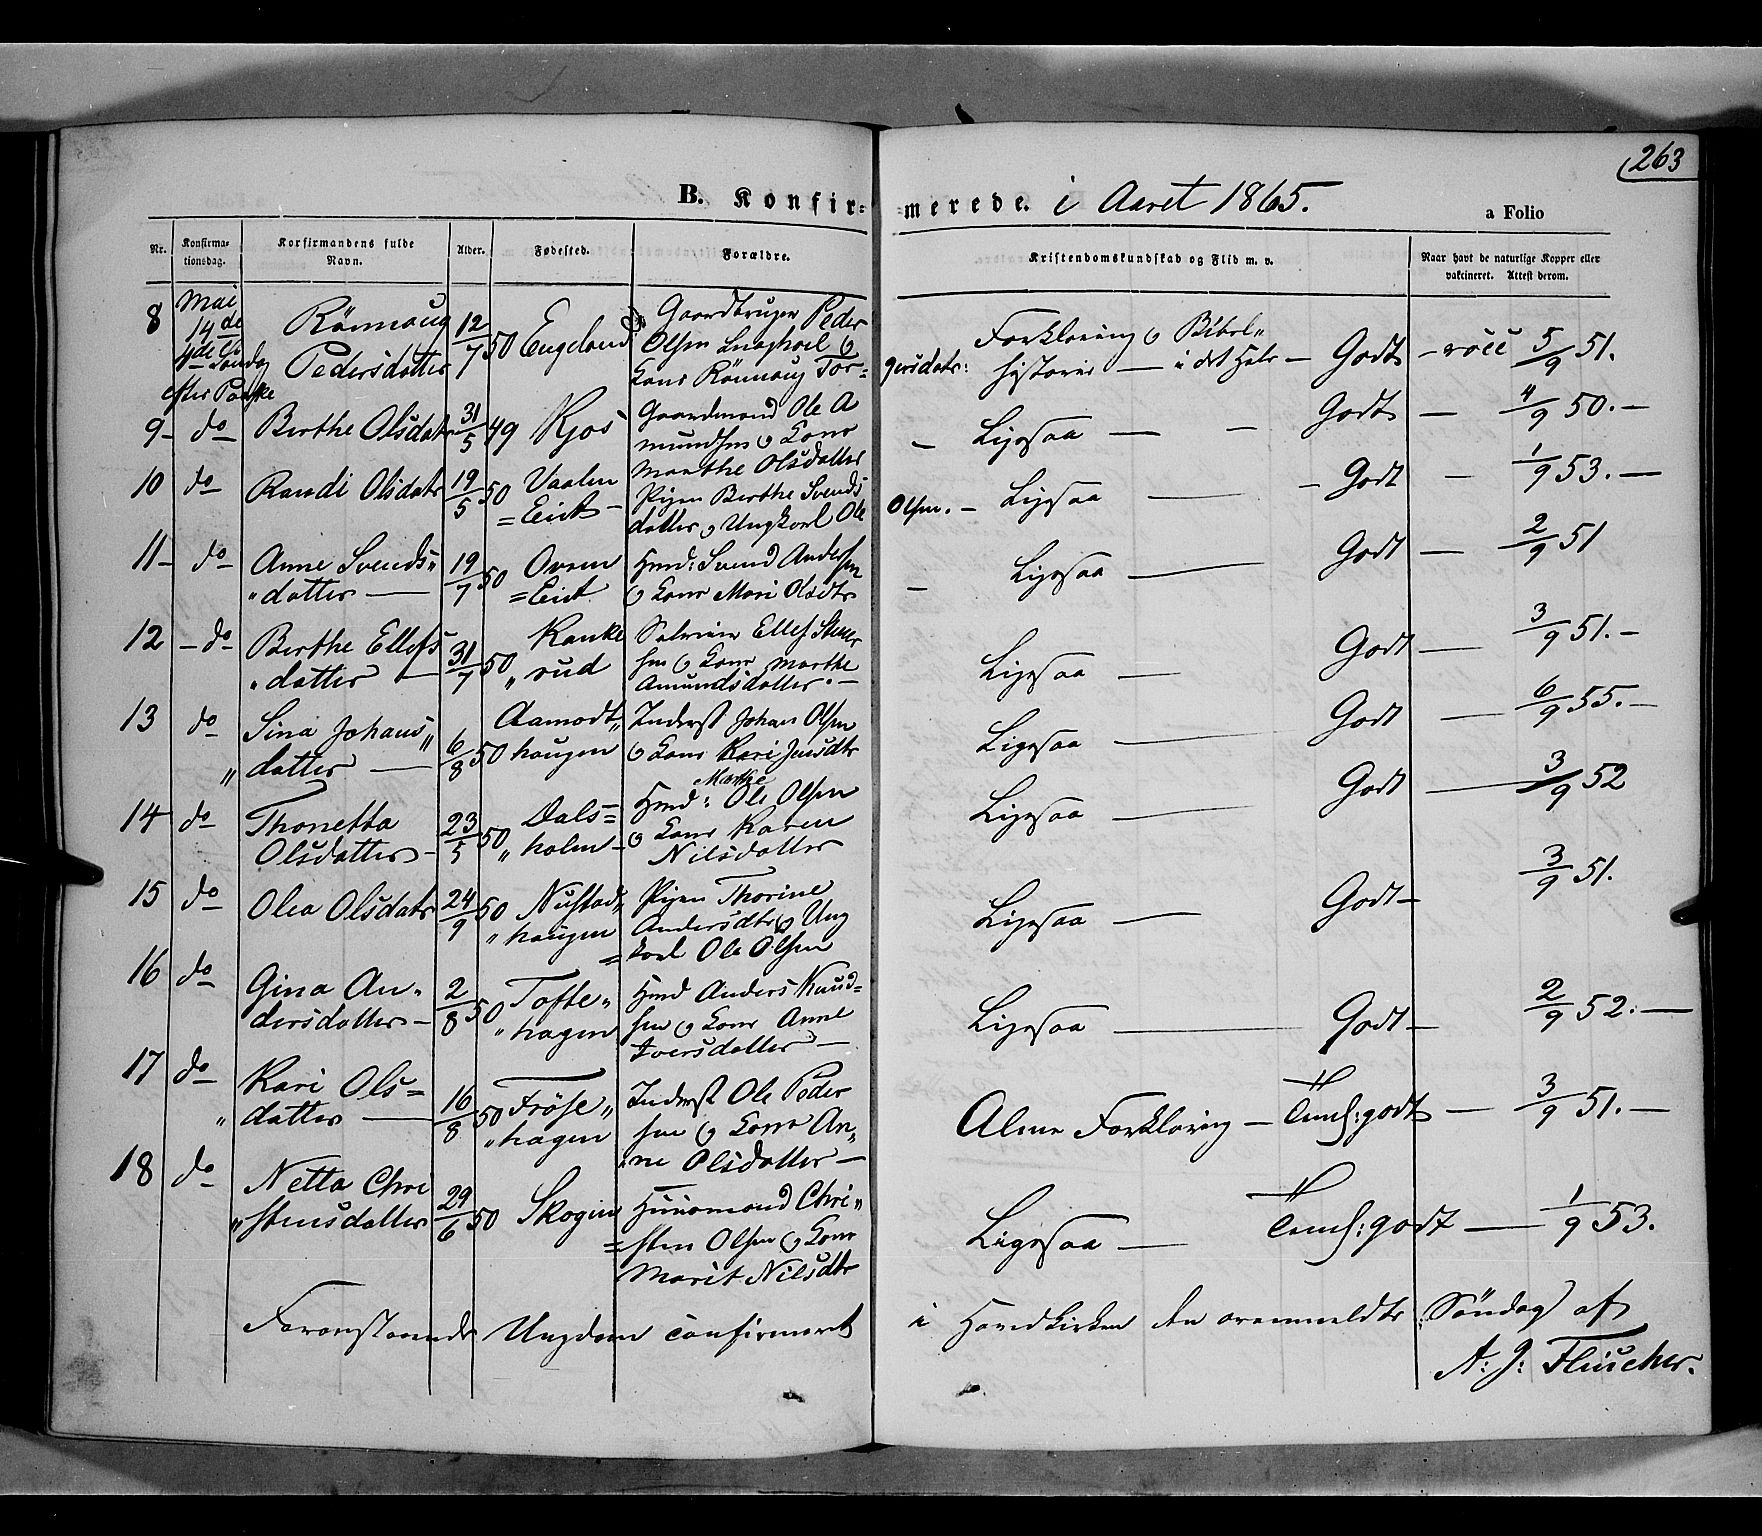 263
B. Konfir= =merede. i Aaret 1865. a Folio
Nr. Konfirma-tionsdag. Korfirmandens fulde Navn. Alder. Fødested. Forældre. Kristendomskundskab og Flid m. v. Naar havt de naturlige Kopper eller vakcineret. Attest derom.
8 Mai 14de 4de Søndag efter Paaske
Rönnaug Pedersdatter 12/7 50 Engeland
Gaardbruger Peder
Olsen
Kone Rönnaug Tor=
gersdatr:
Forklaring og Bibel"
historie — i det Hele — Godt — vacc 5/9 51.
9 – do Berthe Olsdatr 31/5 49 Kjos
Gaardmand Ole A
mundsen og Kone
Marthe Olsdatter
– Ligesaa — – Godt — 11/9 50. –
10 do Randi Olsdatr 19/5 50 Vaalen
=Eiet –
Pigen Berthe Svends
datter og Ungkarl Ole
Olsen. –
Ligesaa — – Godt – 1/9 53. –
11 – do Anne Svends"
"datter — 19/7 50 Oven
=Eiet
Hmd: Svend Andersen
og Kone Mari Olsdtr
– Ligesaa — Godt — 2/9 51
12 – do Berthe Ellefs
"datter — 31/7 50 Kanke
"rud
Ellef Steen
sen og Kone Marthe
Amundsdatter. –
Ligesaa — Godt — 3/9 51. –
13 do Sina Johans"
"datter — 6/8 50 Aamodt"
haugen
Inderst Johan Olsen
og Kone Kari Jensdtr
Marthe
Ligesaa — Godt — 6/9 55. –
14 do Thonetta
Olsdatter – 23/5 50 Dals=
"holm –
Hmd: Ole Olsen
og Kone Karen
Nilsdatter
Ligesaa — Godt — 3/9 52
15 do Olea Olsdatr 24/9 50 Nustad"
"haugen
Pigen Thorine
Andersdtr og Ung
=karl Ole Olsen
Ligesaa — Godt – 3/9 51.
16 do Gina An-
dersdatter – 2/8 50 Tofte"
"hagen
Hmd Anders Knud=
sen og Kone Anne
Iversdatter —
Ligesaa — Godt – 2/9 52. —
17 do Kari Ols=
"datter — 16/8 50 Fröse"
"hagen
Inderst Ole Peder
sen og Kone An"
"ne Olsdatter —
Alene Forklaring – Temel: godt — 3/9 51. —
18 do Netta Chri
"stensdatter 29/6 50 Skogen
Huusmand Chri"
=sten Olsen og Kone
Marit Nilsdtr
Ligesaa — Temel: godt — 1/9 53.
Foranstaaende Ungdom confirmeret i Hovedkirken den ovenmeldte Söndag af
A: J: Fleischer.